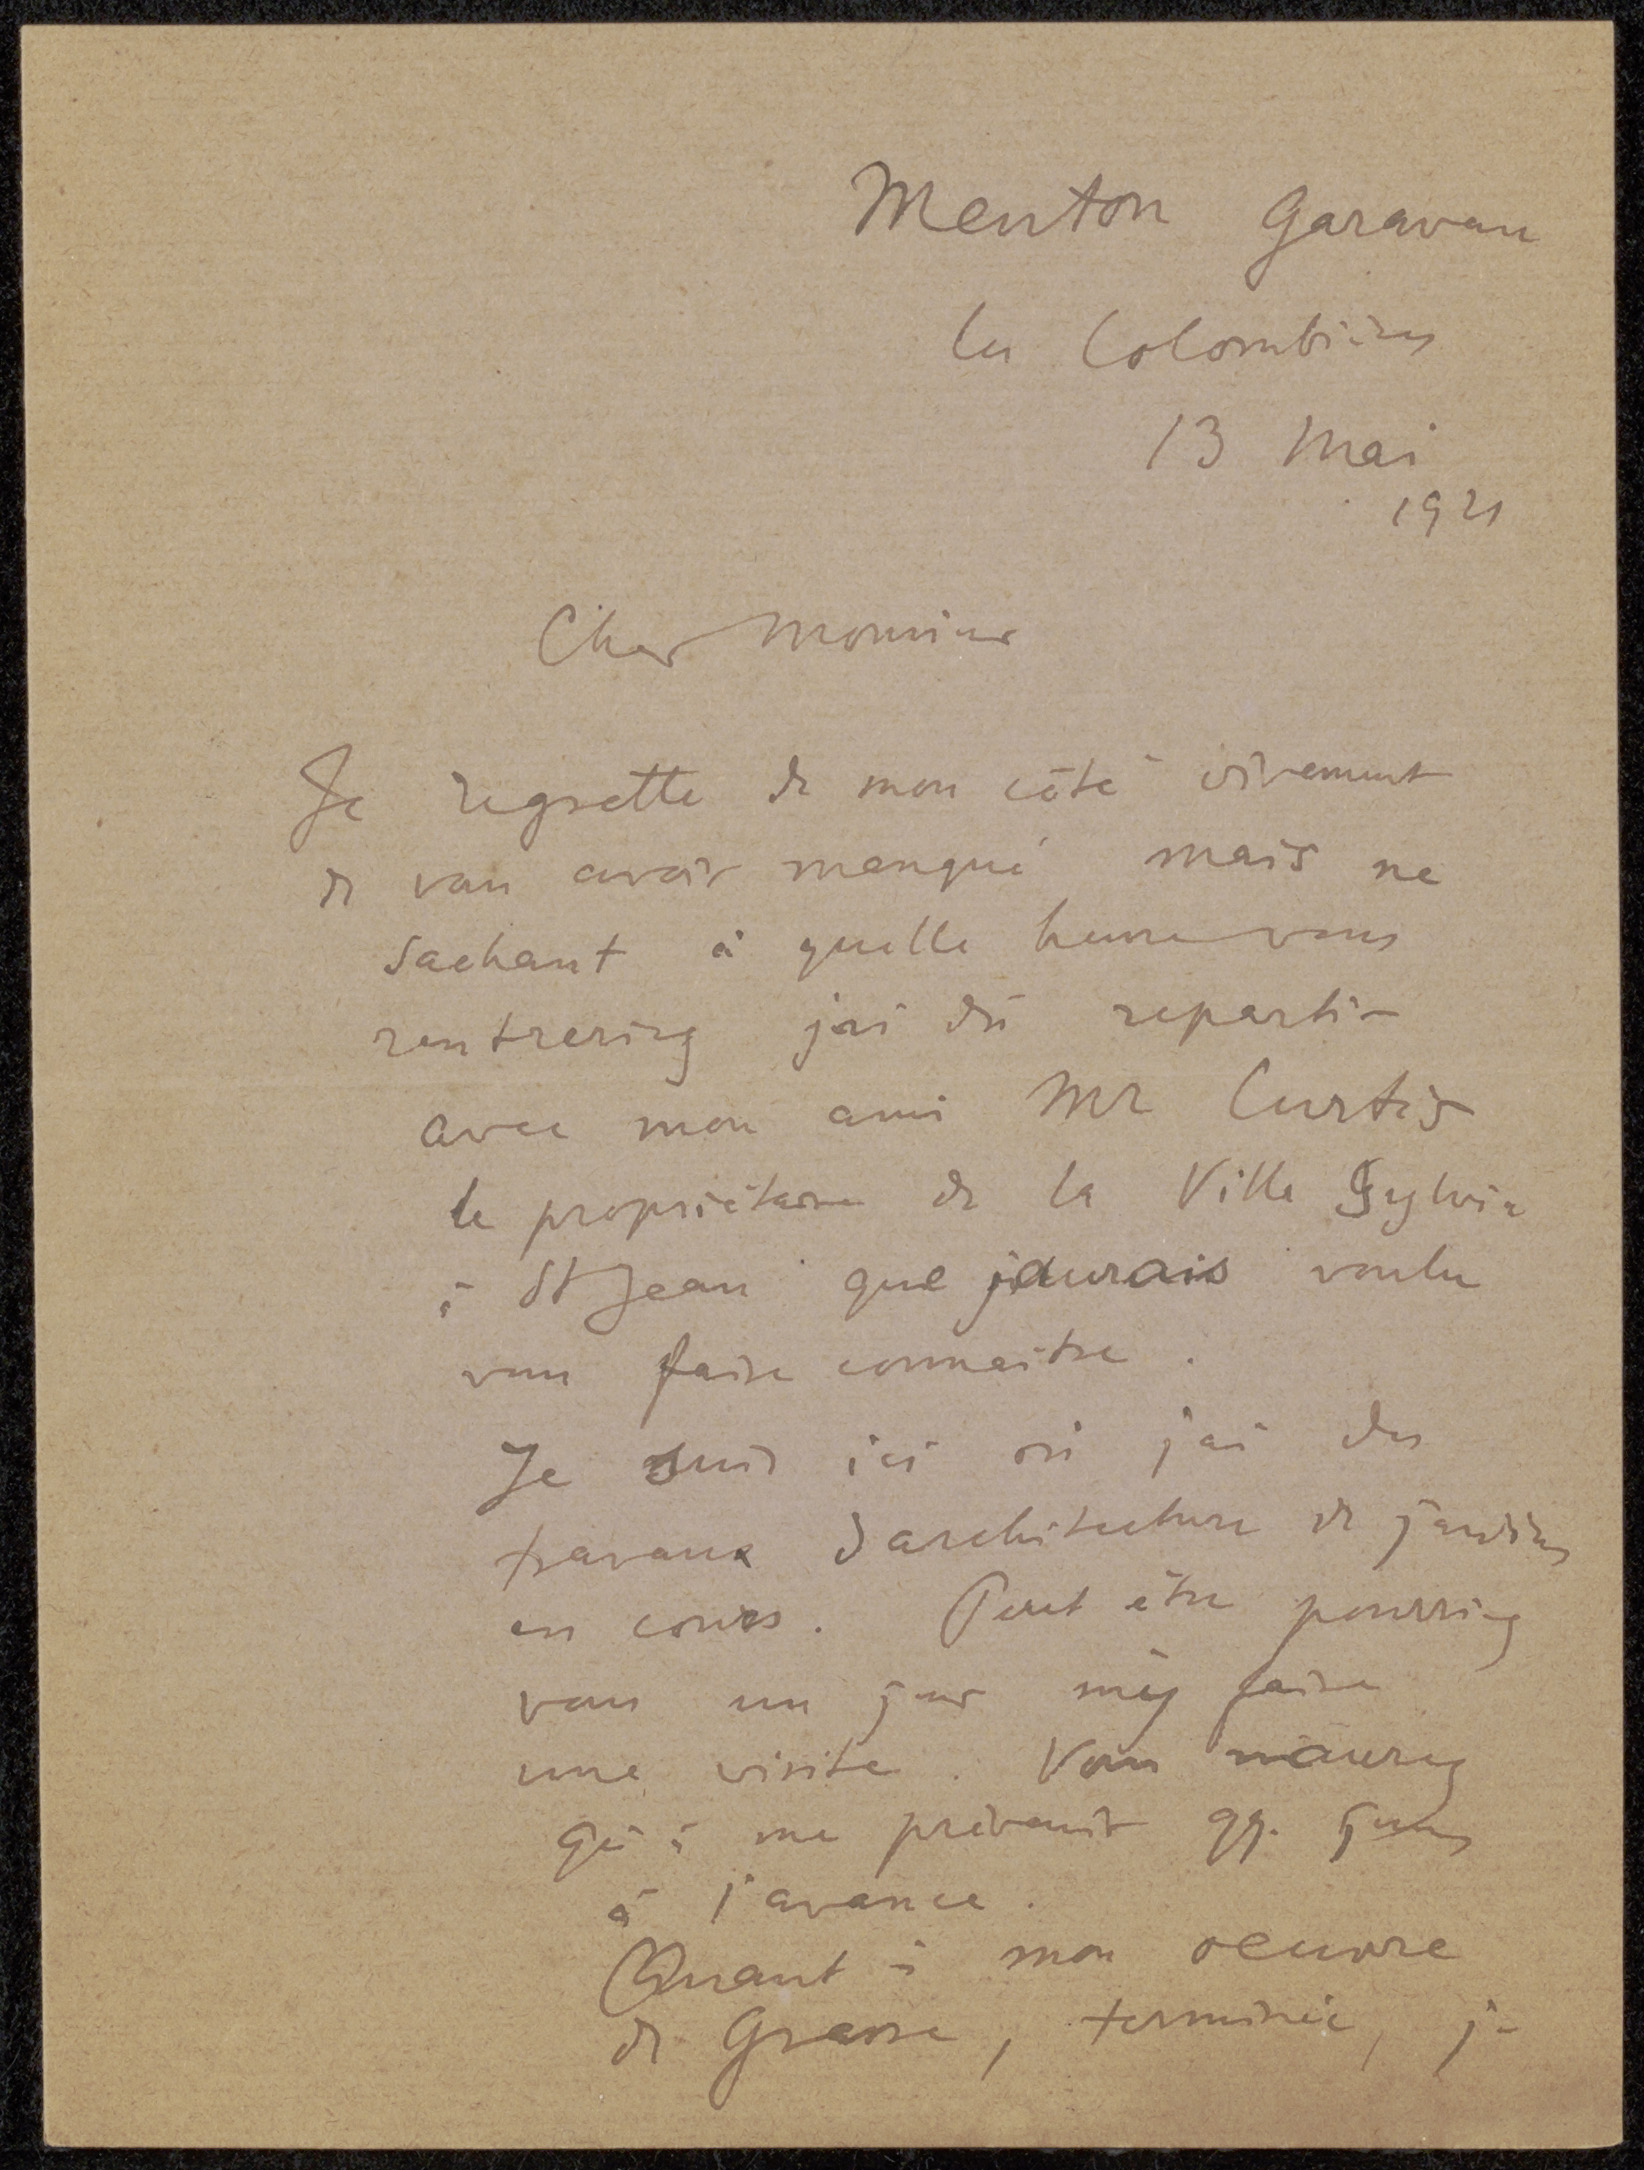 Menton Garavan
les Colombières
13 Mai
1921
Cher Monsieur
Je regrette de mon côté vivement
de vous avoir manqué mais ne
sachant à quelle heure vous
rentreriez j'ai dû repartir
avec mon ami Mr Curtis
le propriétaire de la Villa Sylvia
à St Jean que j'aurais voulu
vous faire connaitre.
Je suis ici où j'ai des
travaux d'architecture de jardins
en cours. Peut être pourriez
vous un jour m'éy faire
une visite. Vous n'aurez
qu'à me prévenir qq. jours
à l'avance.
Quant à mon oeuvre
de Grasse, terminée, je